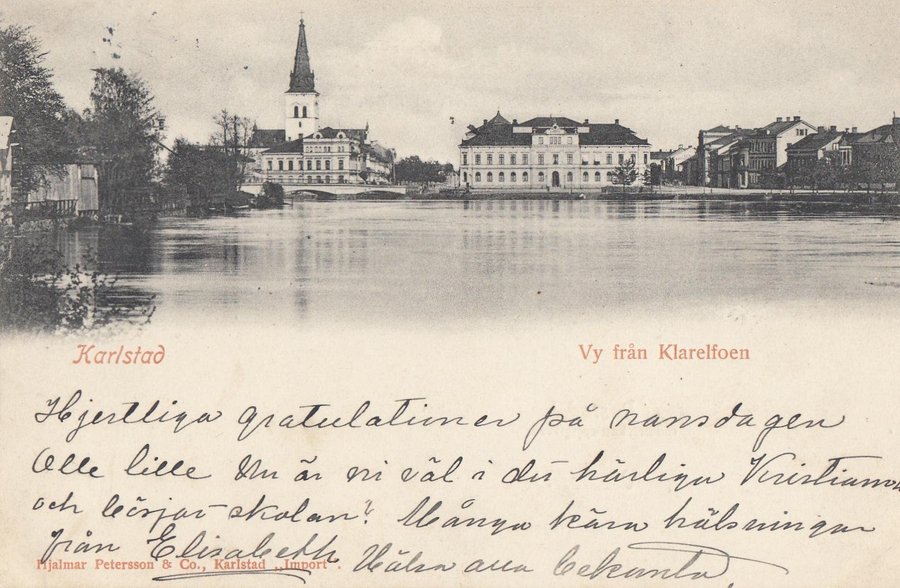 Karlstad
Vy från Klarelfoen
Hjertliga gratulationer på namsdagen
Olle lille Nu är ni väl i det härliga
och börjar skolan? Många kära hälsningar
från Elisabeth Hälsa alla bekanta.
Hjalmar Petersson & Co., Karlstad „Import".